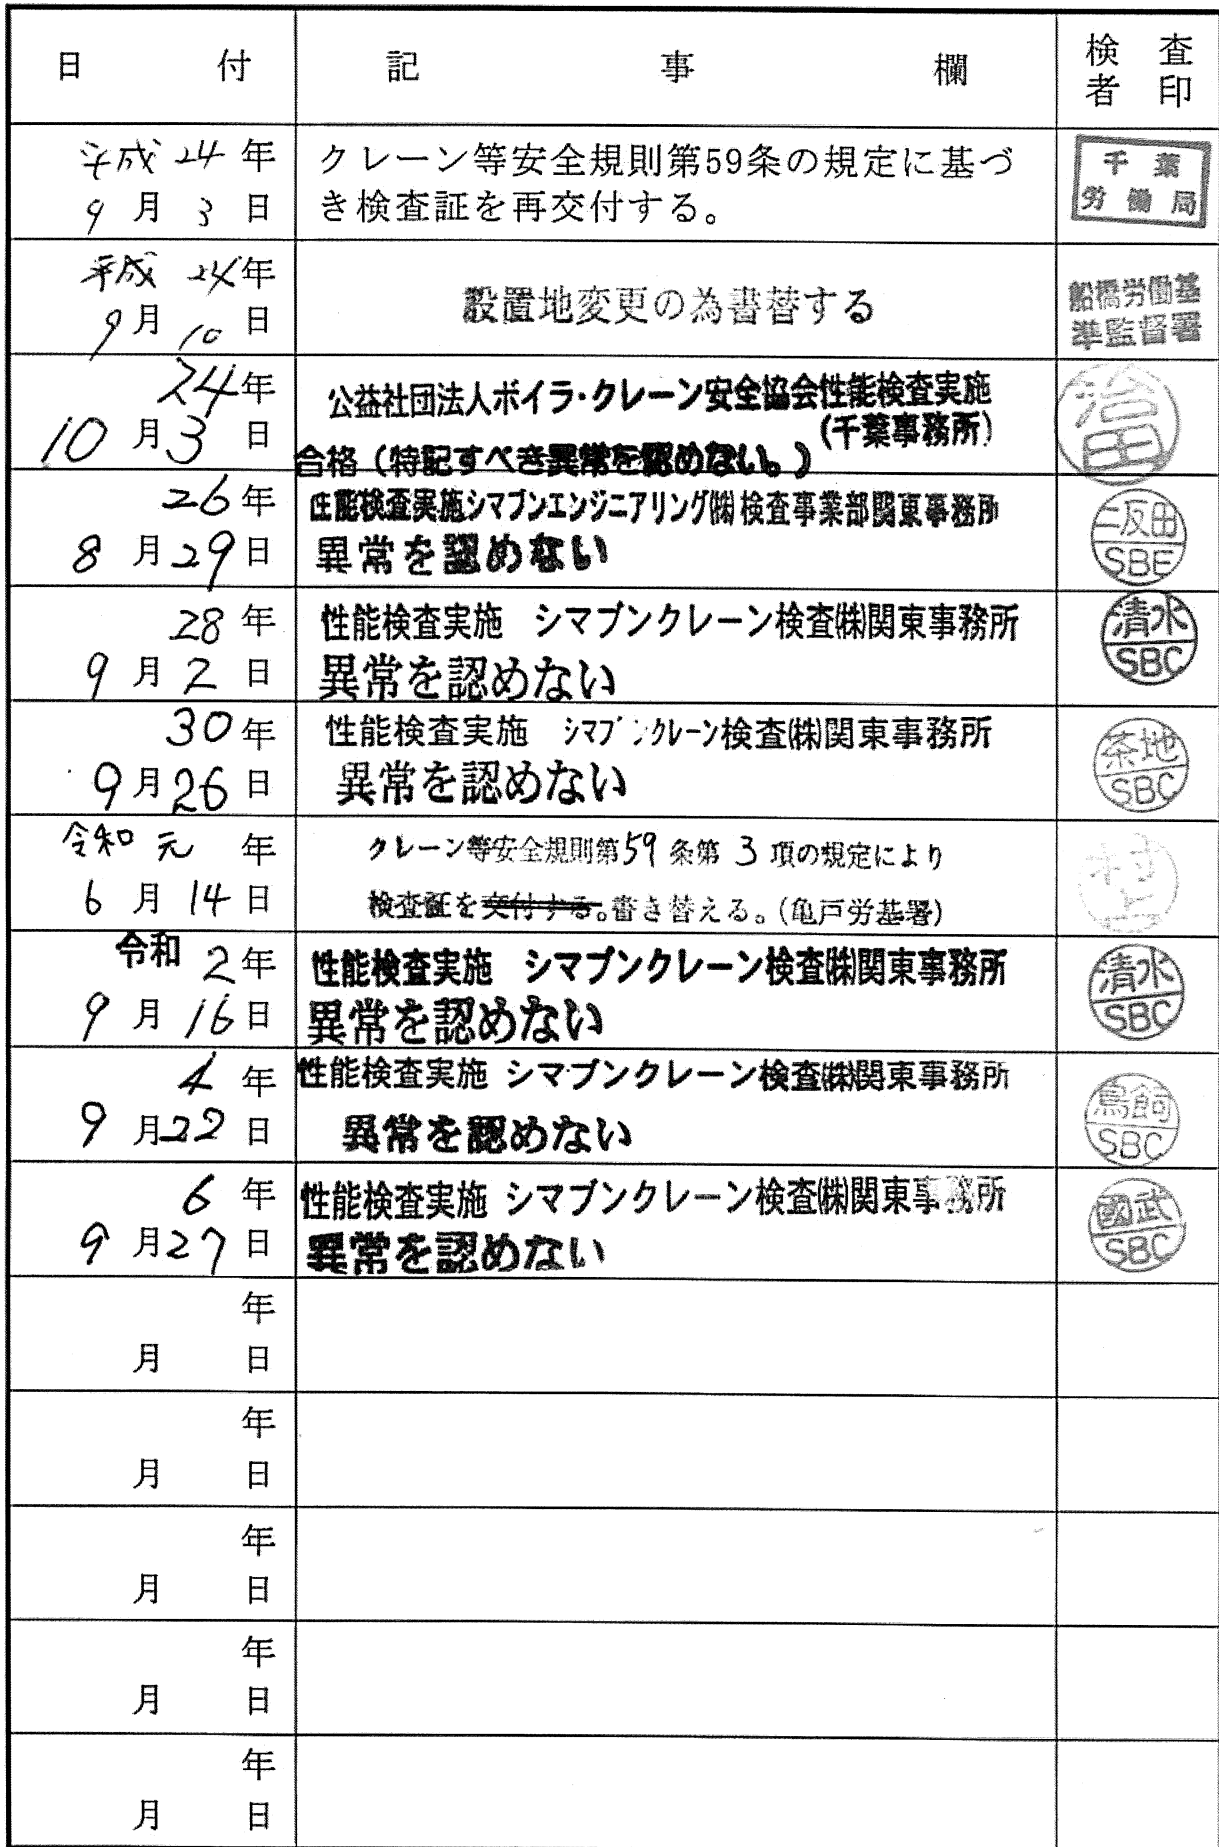 日付 記事欄 検査者印
平成 24 年
9 月 3 日
クレーン等安全規則第59条の規定に基づ
き検査証を再交付する。
千葉
労働局
平成 24 年
9 月 10 日
設置地変更の為書替する
船橋労働基
準監督署
24 年
10 月 3 日
公益社団法人ボイラ・クレーン安全協会性能検査実施
(千葉事務所)
合格（特記すべき異常を認めない。）
治田
26 年
8 月 29 日
性能検査実施シマブンエンジニアリング㈱検査事業部関東事務所
異常を認めない
二反田
SBE
28 年
9 月 2 日
性能検査実施 シマブンクレーン検査㈱関東事務所
異常を認めない
清水
SBC
30 年
9 月 26 日
性能検査実施 シマブンクレーン検査㈱関東事務所
異常を認めない
茶地
SBC
令和 元 年
6 月 14 日
クレーン等安全規則第59条第3項の規定により
検査証を交付する。書き替える。(亀戸労基署)
村上
令和 2 年
9 月 16 日
性能検査実施 シマブンクレーン検査㈱関東事務所
異常を認めない
清水
SBC
4 年
9 月 22 日
性能検査実施 シマブンクレーン検査㈱関東事務所
異常を認めない
鳥飼
SBC
6 年
9 月 27 日
性能検査実施 シマブンクレーン検査㈱関東事務所
異常を認めない
國武
SBC
年
月 日
年
月 日
年
月 日
年
月 日
年
月 日